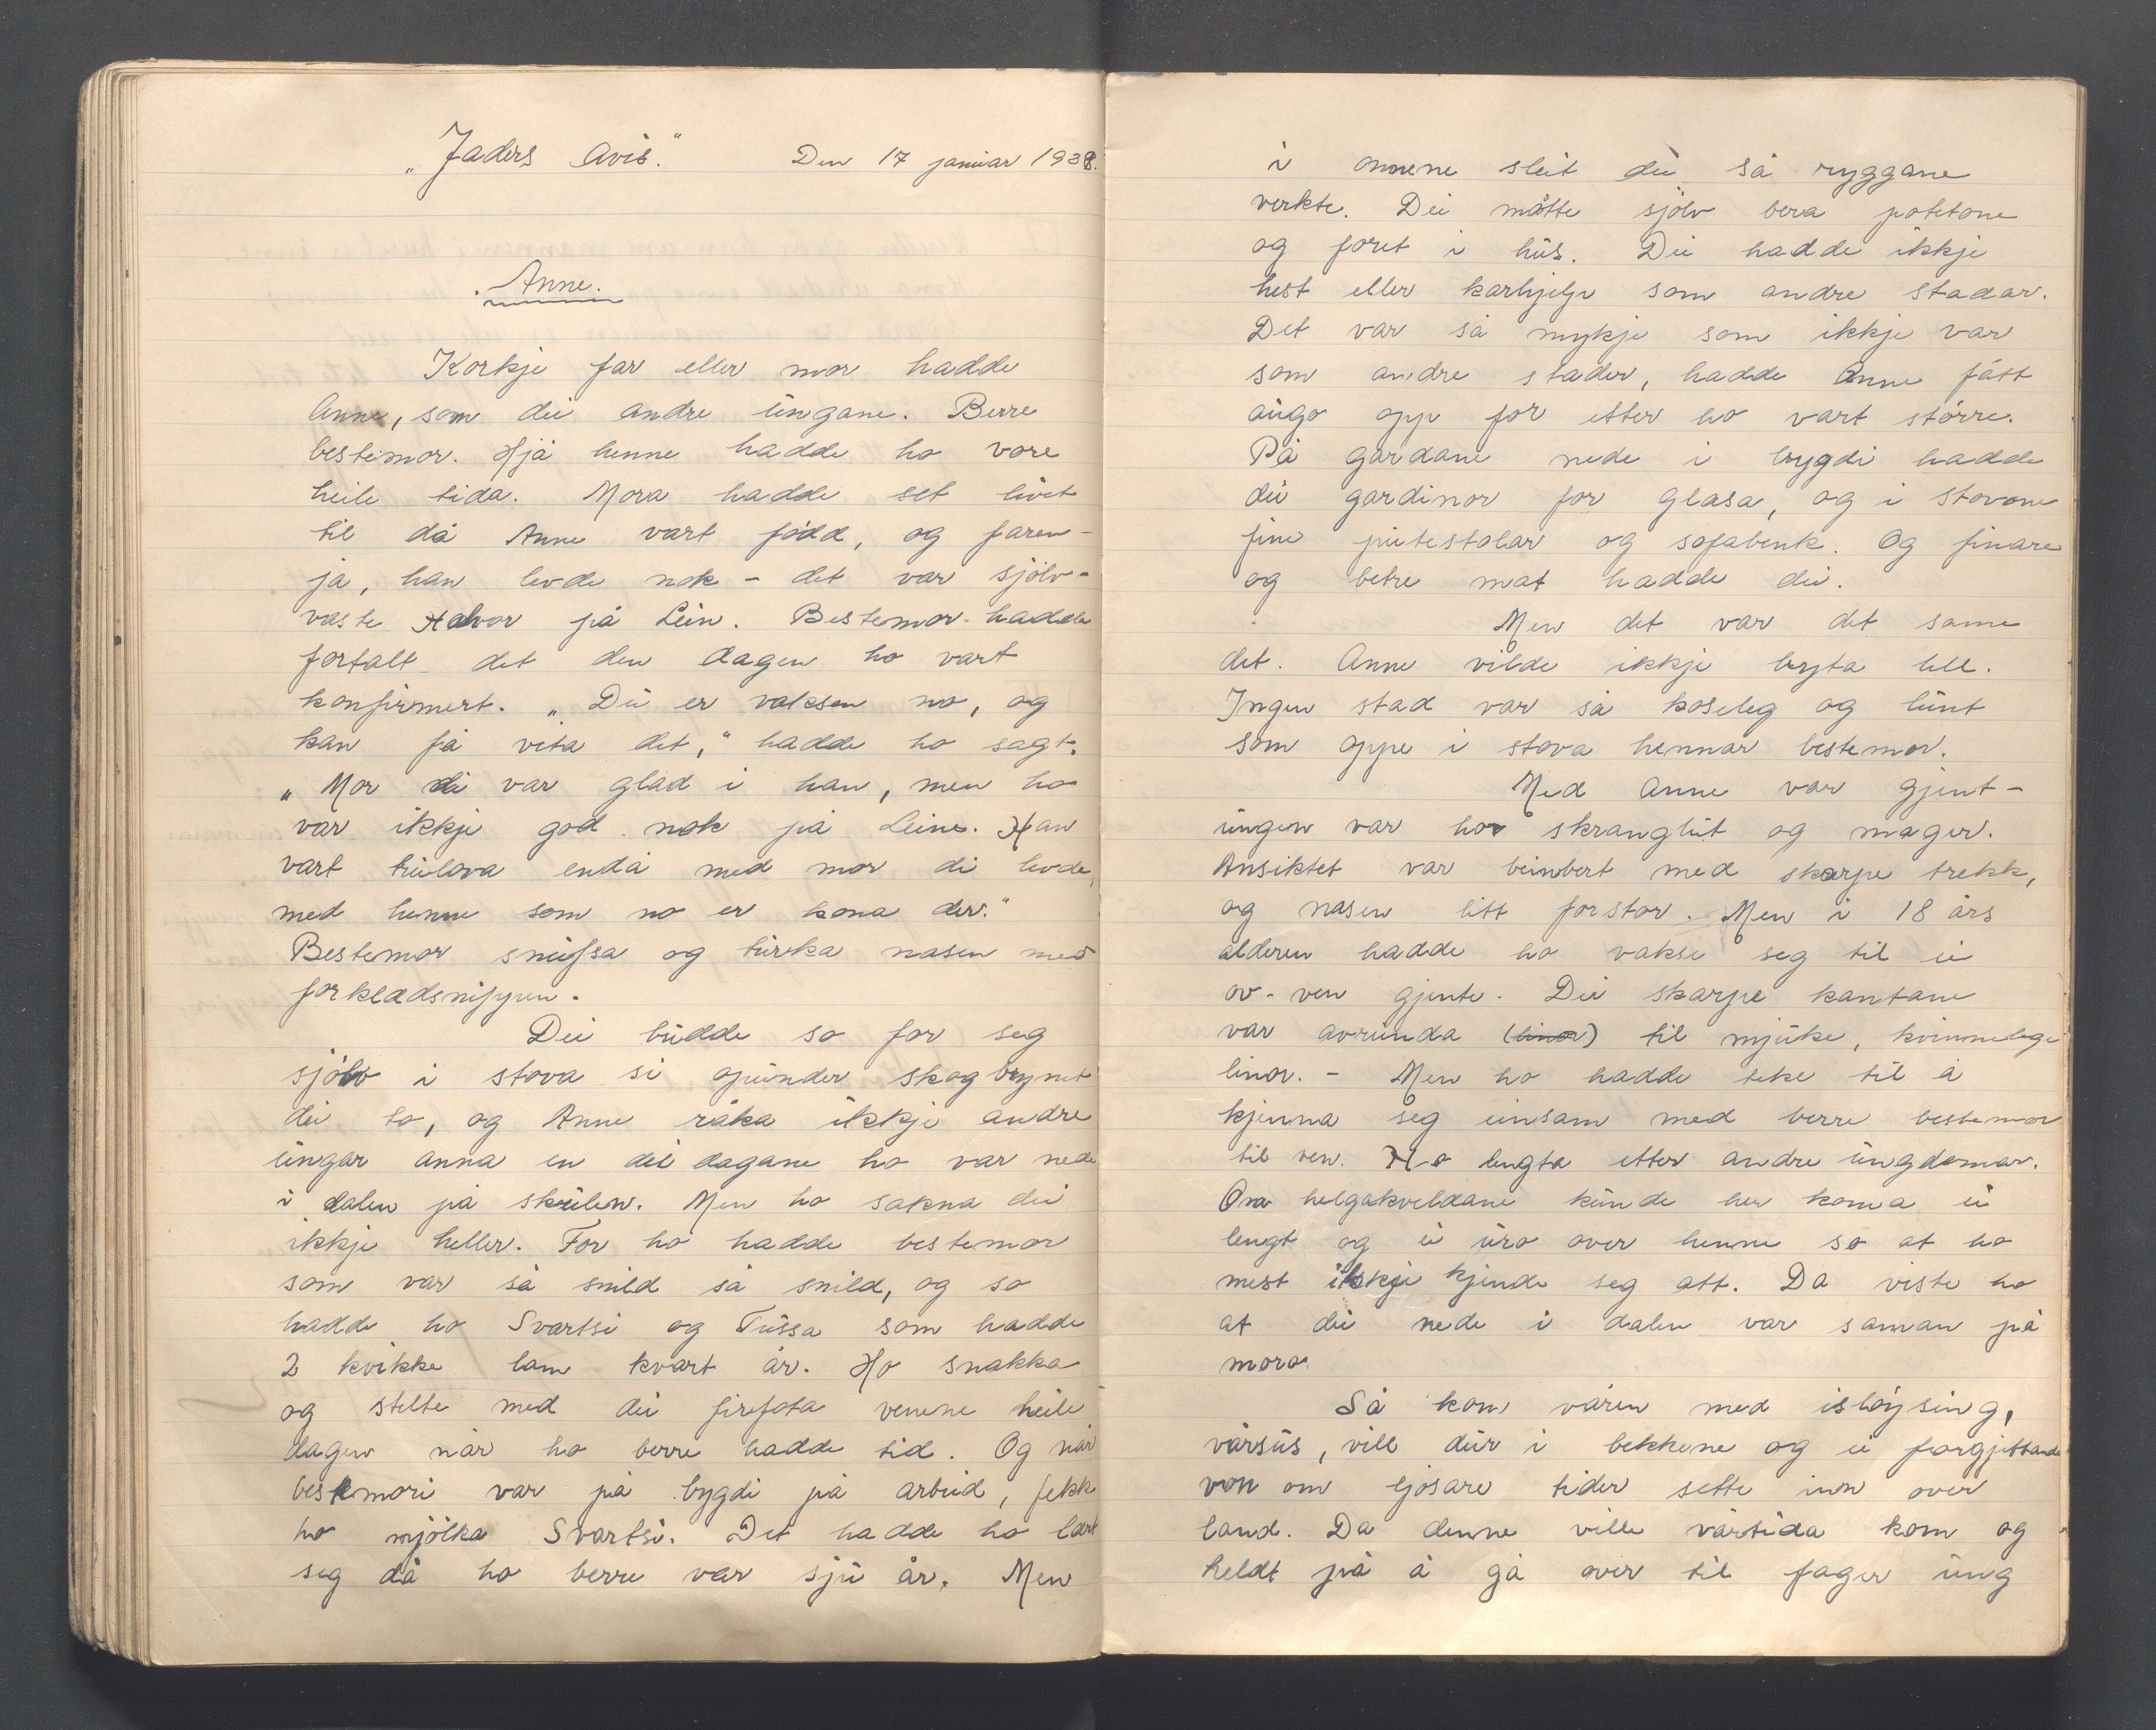 „Jaders Avis.“ Den 17 januar 1938.
Anne.
Korkje far eller mor hadde
Anne, som dei andre ungane. Berre
bestemor. Hjå henne hadde ho vore
heile tida. Mora hadde set livet
til då Anne vart född, og faren-
ja, han levde nok - det var sjölv-
vaste Halvor på Lein. Bestemor hadde
fortalt det den dagen ho vart
konfirmert. „Du er vaksen no, og
kan få vita det,“ hadde ho sagt.
„Mor di var glad i han, men ho
var ikkje god nok på Leine. Han
vart trulova endå med mor di levde,
med henne som no er kona der.“
Bestemor snufsa og turka nasen med
forklædsnippen.
Dei budde so for seg
sjölv i stova si opunder skogbrynet
dei to, og Anne råka ikkje andre
ungar anna en dei dagane ho var nede
i dalen på skulen. Men ho sakna dei
ikkje heller. For ho hadde bestemor
som var så snild så snild, og so
hadde ho Svartsi og Tussa som hadde
2 kvikke lam kvart år. Ho snakka
og stelte med dei firfota venene heile
dagen når ho berre hadde tid. Og når
bestemori var på bygdi på arbeid, fekk
ho mjölka Svartsi. Det hadde ho lært
seg då ho berre var sju år. Men
i onnene sleit dei så ryggane
verkte. Dei måtte sjölv bera potetone
og foret i hus. Dei hadde ikkje
hest eller karhjelp som andre stadar.
Det var så mykje som ikkje var
som andre stader, hadde Anne fått
augo opp for etter ho vart större.
På gardane nede i bygdi hadde
dei gardinor for glasa, og i stovone
fine putestolar og sofabenk. Og finare
og betre mat hadde dei.
Men det var det same
det. Anne vilde ikkje byta lell.
Ingen stad var så koseleg og lunt
som oppe i stova hennar bestemor.
Med Anne var gjent-
ungen var ho skranglut og mager.
Ansiktet var beinbert med skarpe trekk,
og nasen litt forstor. Men i 18 års
alderen hadde ho vakse seg til ei
ov-ven gjente. Dei skarpe kantane
var avrunda (linor) til mjuke, kvinnelege
linor. - Men ho hadde teke til å
kjenna seg einsam med berre bestemor
til ven. Ho lengta etter andre ungdomar.
Om helgakveldane kunde her koma ei
lengt og ei uro over henne so at ho
mest ikkje kjende seg att. Da viste ho
at dei nede i dalen var saman på
moro.
Så kom våren med islöysing,
vårsus, vill dur i bekkene og ei forgjettande
von om ljosare tider sette inn over
land. Da denne ville vårtida kom og
heldt på å gå over til fager ung